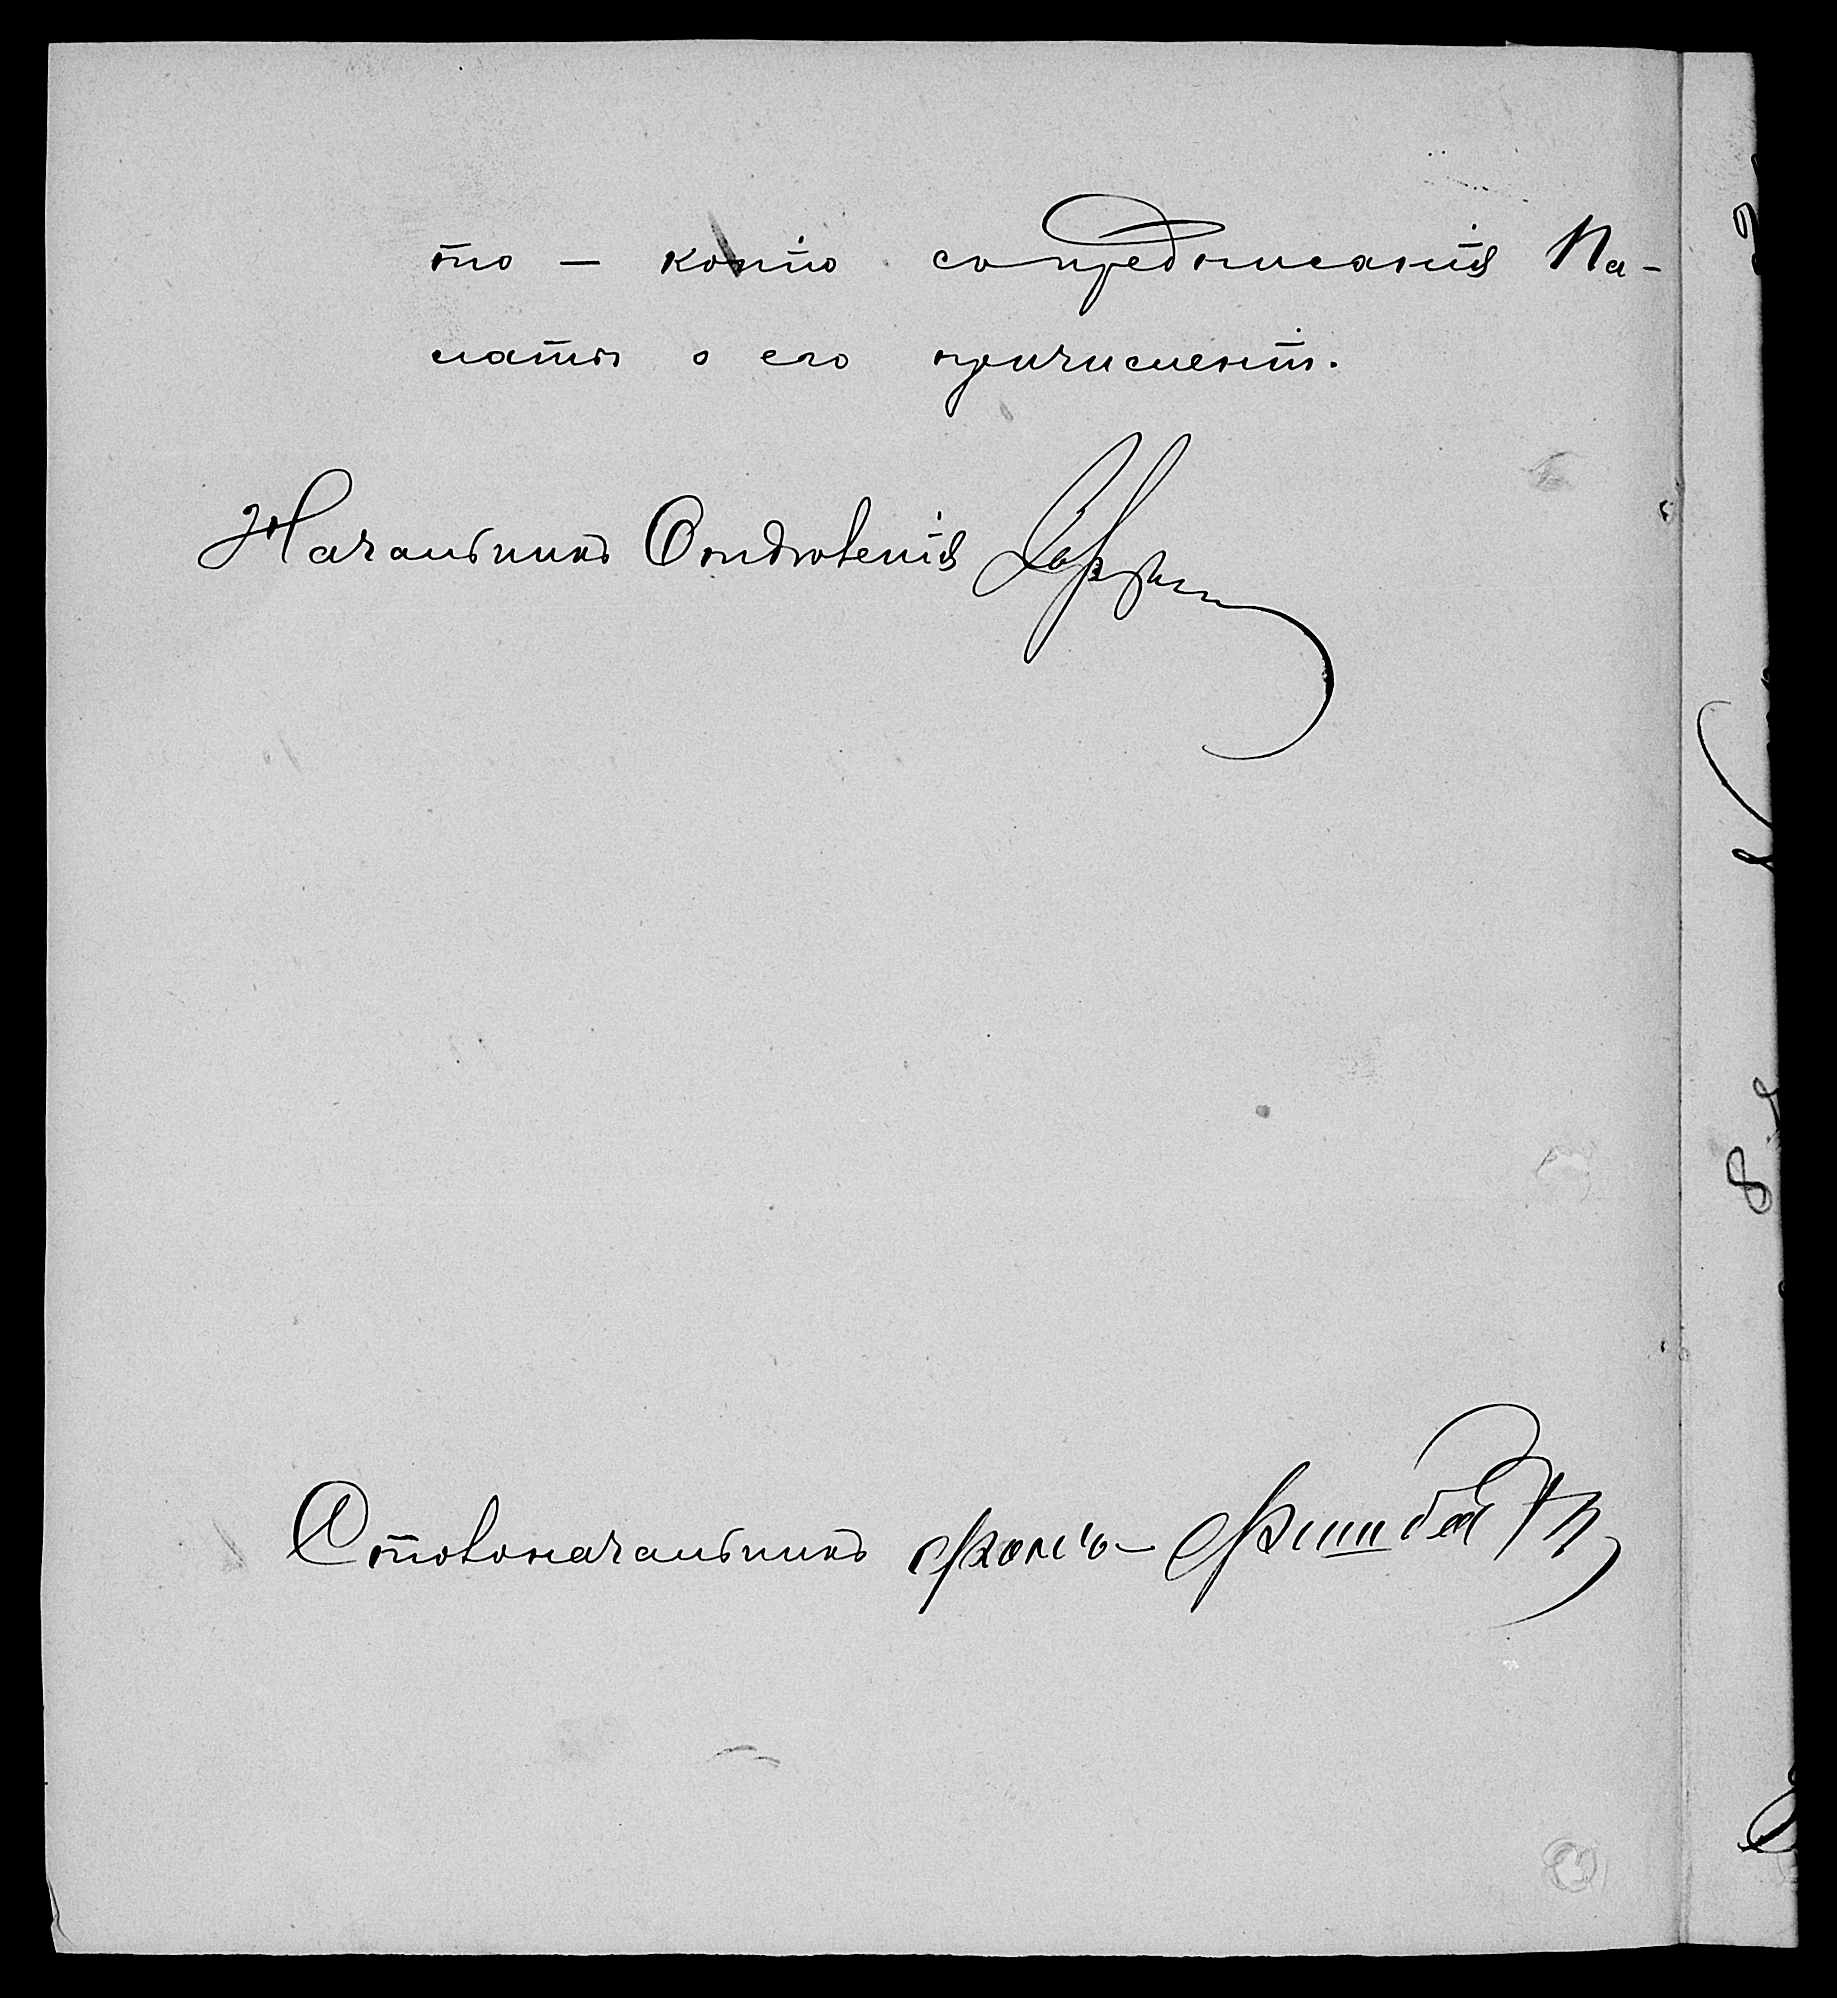 то — копію съ предписанія Па-
латы о его причисленіи.
Начальникъ Отдѣленія
Столоначальникъ